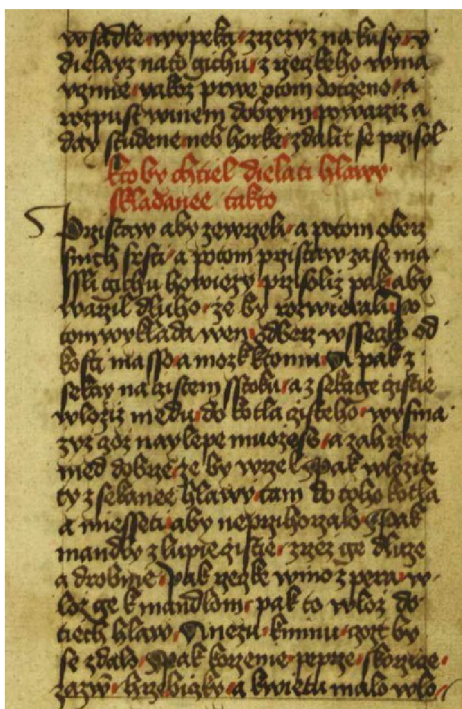 w sadle · wypeka · zrzezyz na kusy · v
dielayz nato gichu · z rzezkeho wina
vzmie · wloz prwe otom doczeno · a
rozpust winem dobrym · powarziz a
day studene neb horke · zdalit se przisol
ktoby chtiel dielati hlawy
skladanee takto
Przistaw aby zewrzely · a potom oberz
snich srsti · a potom przistaw zase ma
ssli gichu howiezy · przisoliz pak · aby
warzil dluho · ze by rozwierali · po
tom wyklada wen · zberz wsseczko od
kosti masso · a mozk ktomu · A pak z
sekay na czistem sstoku · a zsekage czistie
wloziz medu · do kotla czisteho · wysma
zyz gøz naylepe muozess · a zahrzey
med dobrze · ze by wrzel · Pak wloziti
ty zsekanee hlawy · tam do toho kotla
a miesseti · aby neprzihorzalo · Pak
mandly zlupie czistie · zrzez ge dluze
a drobnie · Pak rzezke wino zpera · w
loz ge k mandlom · pak to wloz do
tiech hlaw · Anezu · kminu · gozt by
se zdalo · Pak korzenie · peprze · skorzige ·
zazw · hrzebiczky · a kwietu malo wlo